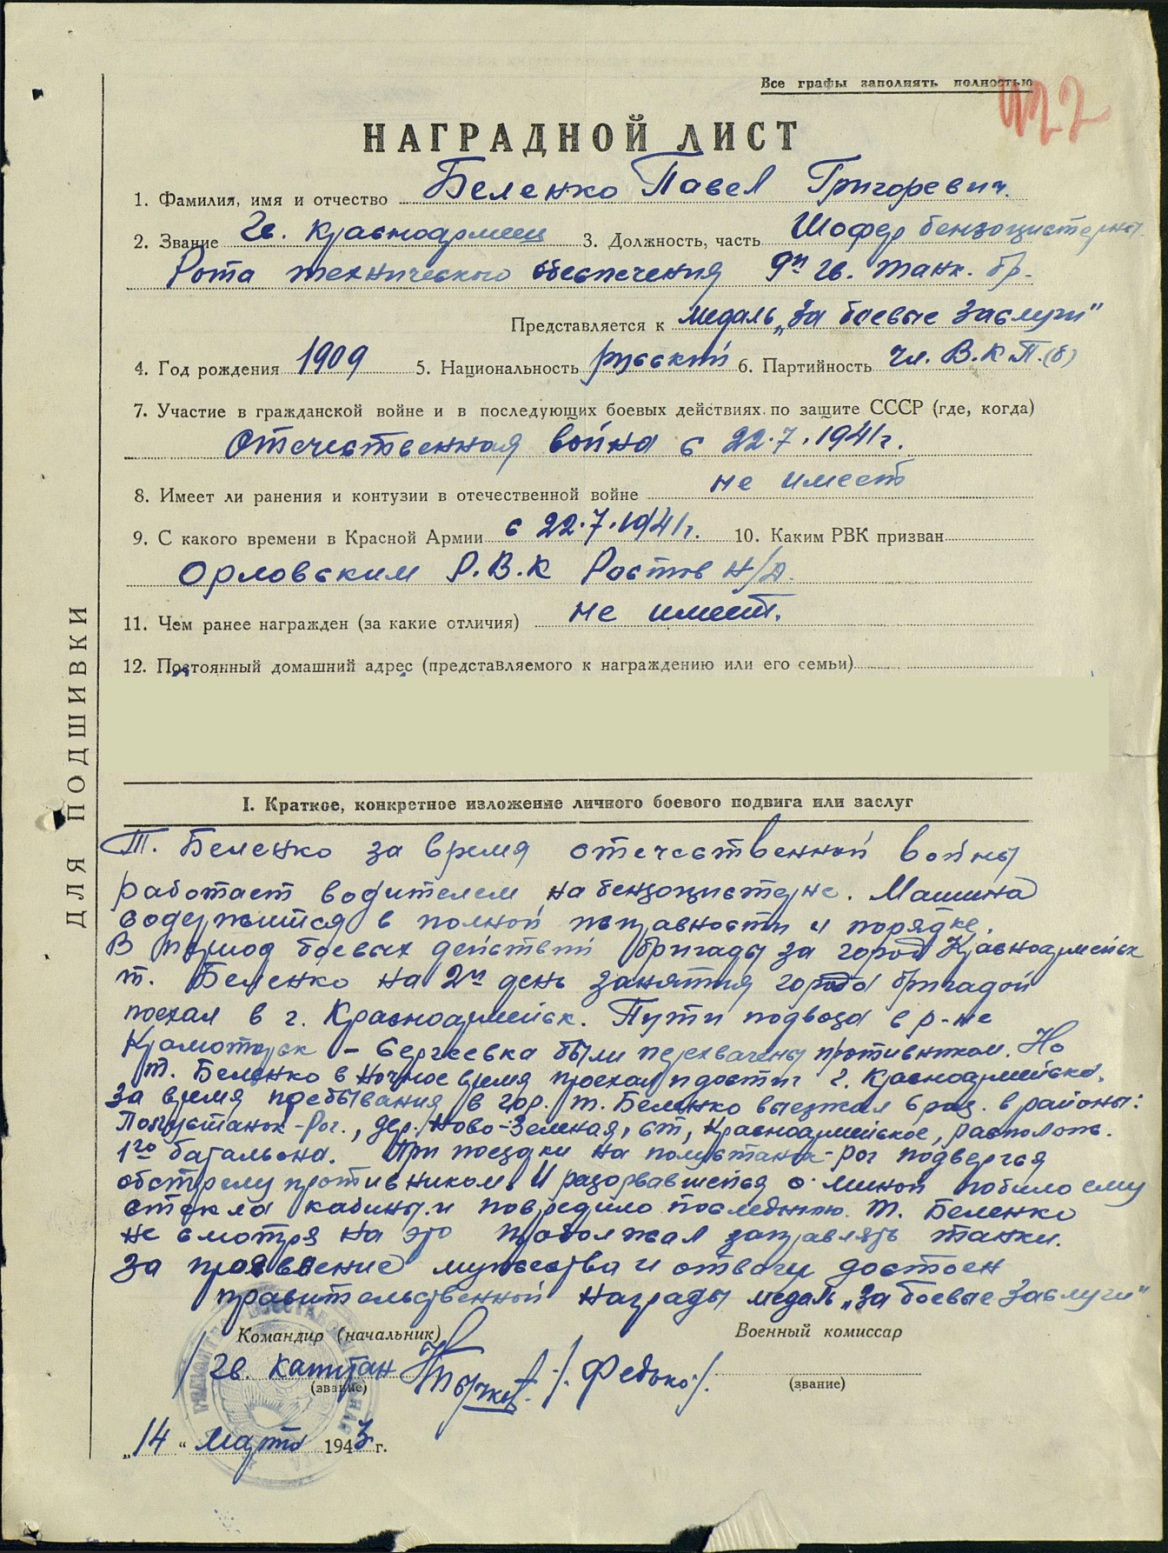 Все графы заполнять полностью
422
НАГРАДНОЙ ЛИСТ
1. Фамилия, имя и отчество Беленко Павел Григоревич.
2. Звание Гв. Красноармеец 3. Должность, часть Шофер бензоцистерны
Рота технического обеспечения 9й гв. танк. бр.
Представляется к медаль „За боевые заслуги"
4. Год рождения 1909 5. Национальность русский 6. Партийность чл. В.К.П.(б)
7. Участие в гражданской войне и в последующих боевых действиях по защите СССР (где, когда)
Отечественная война с 22.7.1941г.
8. Имеет ли ранения и контузии в отечественной войне не имеет
9. С какого времени в Красной Армии с 22.7.1941г. 10. Каким РВК призван
Орловским Р.В.К Ростов н/Д.
11. Чем ранее награжден (за какие отличия) не имеет.
12. Постоянный домашний адрес (представляемого к награждению или его семьи)
ДЛЯ ПОДШИВКИ
I. Краткое, конкретное изложение личного боевого подвига или заслуг
Т. Беленко за время отечественной войны
работает водителем на бензоцистерне. Машина
содержится в полной исправности и порядке.
В период боевых действий бригады за город Красноармейск
т. Беленко на 2й день занятия города бригадой
поехал в г. Красноармейск. Пути подвоза в р-не
Краматорск – Сергеевка были перехвачены противником. Но
т. Беленко в ночное время проехал и достиг г. Красноармейска.
За время пребывания в гор. т. Беленко выезжал 6 раз. в районы:
Полустанок-Рог., дер. Ново-Зеленая, ст, Красноармейское, располож.
1го батальона. При поездки на полустанок-рог подвергся
обстрелу противником. И разорвавшейся миной побило ему
стекла кабины и повредило последнюю. Т. Беленко
не смотря на это продолжал заправлять танки.
За проявление мужества и отваги достоен
правительственной награды медаль „За боевые заслуги"
Командир (начальник) Военный комиссар
Гв. Капитан /. Федько./
(звание) (звание)
„14" марта 1943 г.